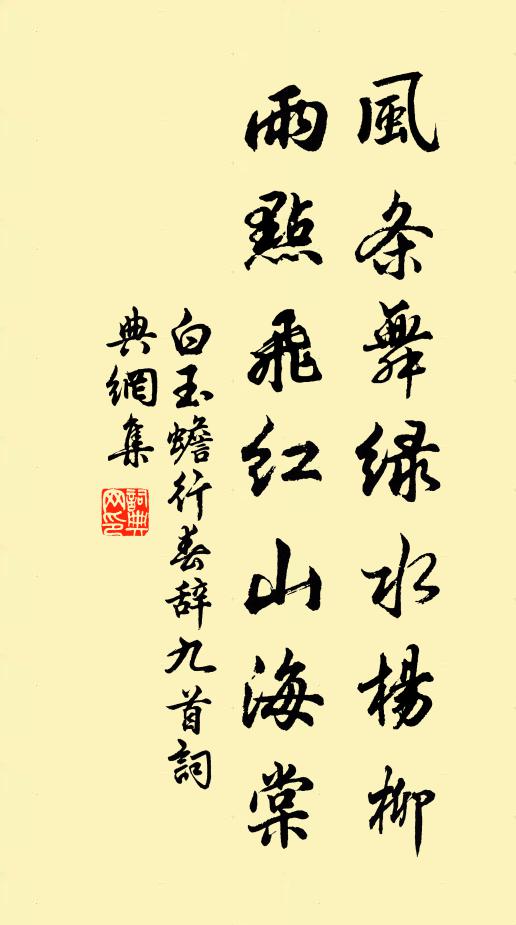 風条舞绿水楊柳
雨點飛红山海棠
白玉蟾行春辞九首詞
典網集
詞典网印